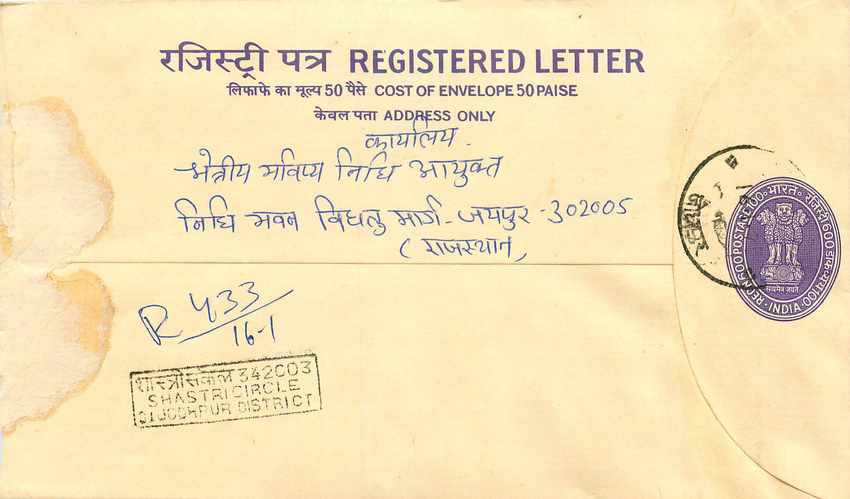 रजिस्ट्री पत्र REGISTERED LETTER
लिफाफे का मूल्य 50 पैसे COST OF ENVELOPE 50 PAISE
केवल पता ADDRESS ONLY
कार्यालय
क्षेत्रीय भविष्य निधि आयुक्त
निधि भवन विधुत मार्ग - जयपुर - 302005
(राजस्थान)
R 433
16-1
शास्त्री सर्कल 342003
SHASTRI CIRCLE
JODHPUR DISTRICT
भारत
INDIA
सत्यमेव जयते